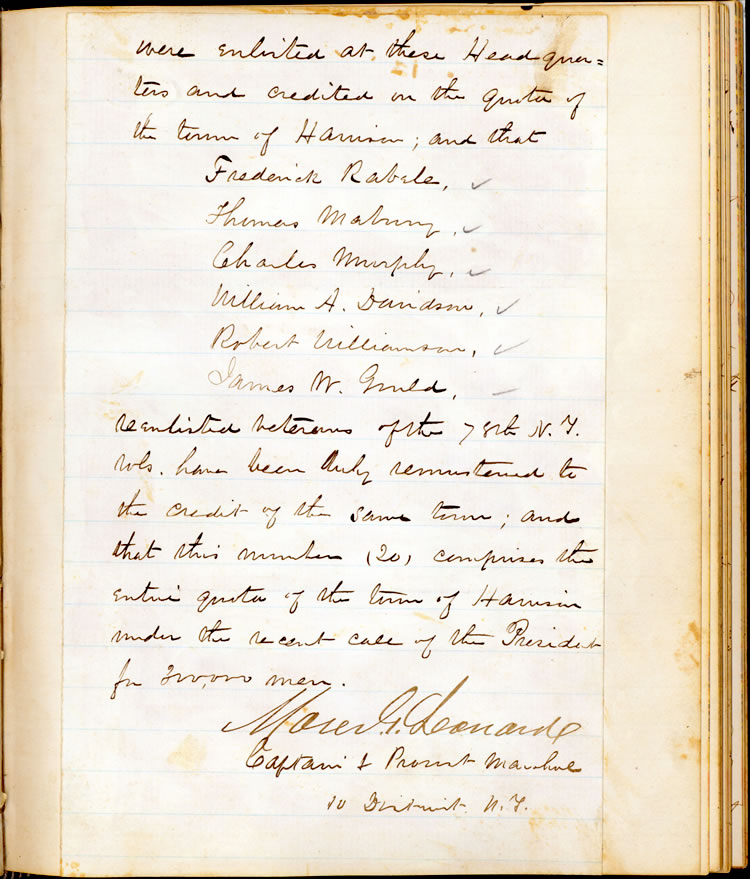 were enlisted at these Headquar=
ters and credited on the quota of
the town of Harrison; and that
Frederick Rabele,
Thomas Mabury,
Charles Murphy,
William A. Davidson,
Robert Williamson,
James W. Gould,
reenlisted veterans of the 78th N.Y.
Vols. have been duly remustered to
the credit of the same town; and
that this number (20) comprises the
entire quota of the town of Harrison
under the recent call of the President
for 300,000 men.
Moses G. Leonard
Captain & Provost Marshal
10 District N.Y.